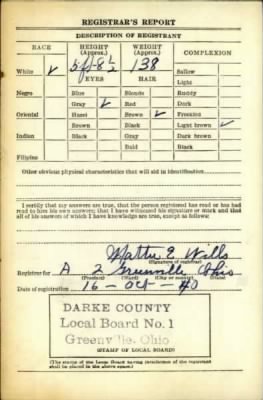 REGISTRAR'S REPORT
DESCRIPTION OF REGISTRANT
RACE HEIGHT (Approx.) WEIGHT (Approx.) COMPLEXION
White ✓ 5 ft 8 1/2 138 Sallow
EYES HAIR Light
Negro Blue Blonde Ruddy
Gray ✓ Red Dark
Oriental Hazel Brown ✓ Freckled
Brown Black Light brown ✓
Indian Black Gray Dark brown
Bald Black
Filipino
Other obvious physical characteristics that will aid in identification
I certify that my answers are true; that the person registered has read or has had
read to him his own answers; that I have witnessed his signature or mark and that
all of his answers of which I have knowledge are true, except as follows:
Mattie E Wills
(Signature of registrar)
Registrar for A 2 Greenville Ohio
(Precinct) (Ward) (City or county) (State)
Date of registration 16 - Oct - 40
DARKE COUNTY
Local Board No. 1
Greenville, Ohio
(STAMP OF LOCAL BOARD)
(The stamp of the Local Board having jurisdiction of the registrant
shall be placed in the above space.)